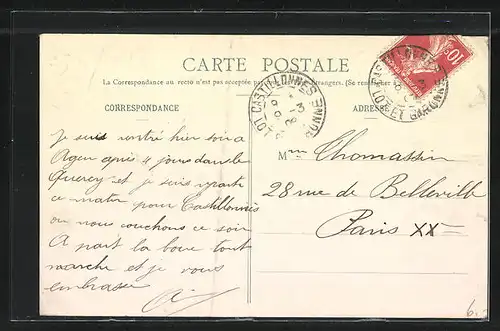 CARTE POSTALE
La Correspondance au recto n'est pas acceptée par tous les pays étrangers. (Se renseigner
CORRESPONDANCE
ADRESSE
CASTILLONNES
LOT ET GARONNE
10
Je suis rentré hier soir à
Agen après 4 jours dans le
Quercy et je suis reparti
ce matin pour Castillonnès
où nous couchons ce soir
A part la boue tout
marche et je vous
embrasse
Thomassin
28 rue de Belleville
Paris XX=